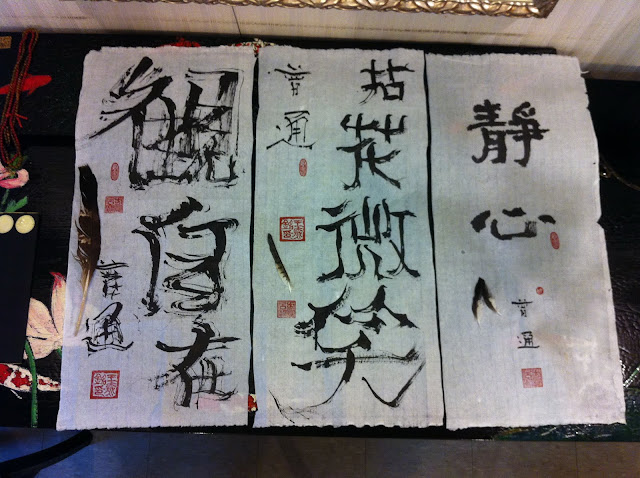 靜心
普通
拈花微笑
普通
觀自在
普通